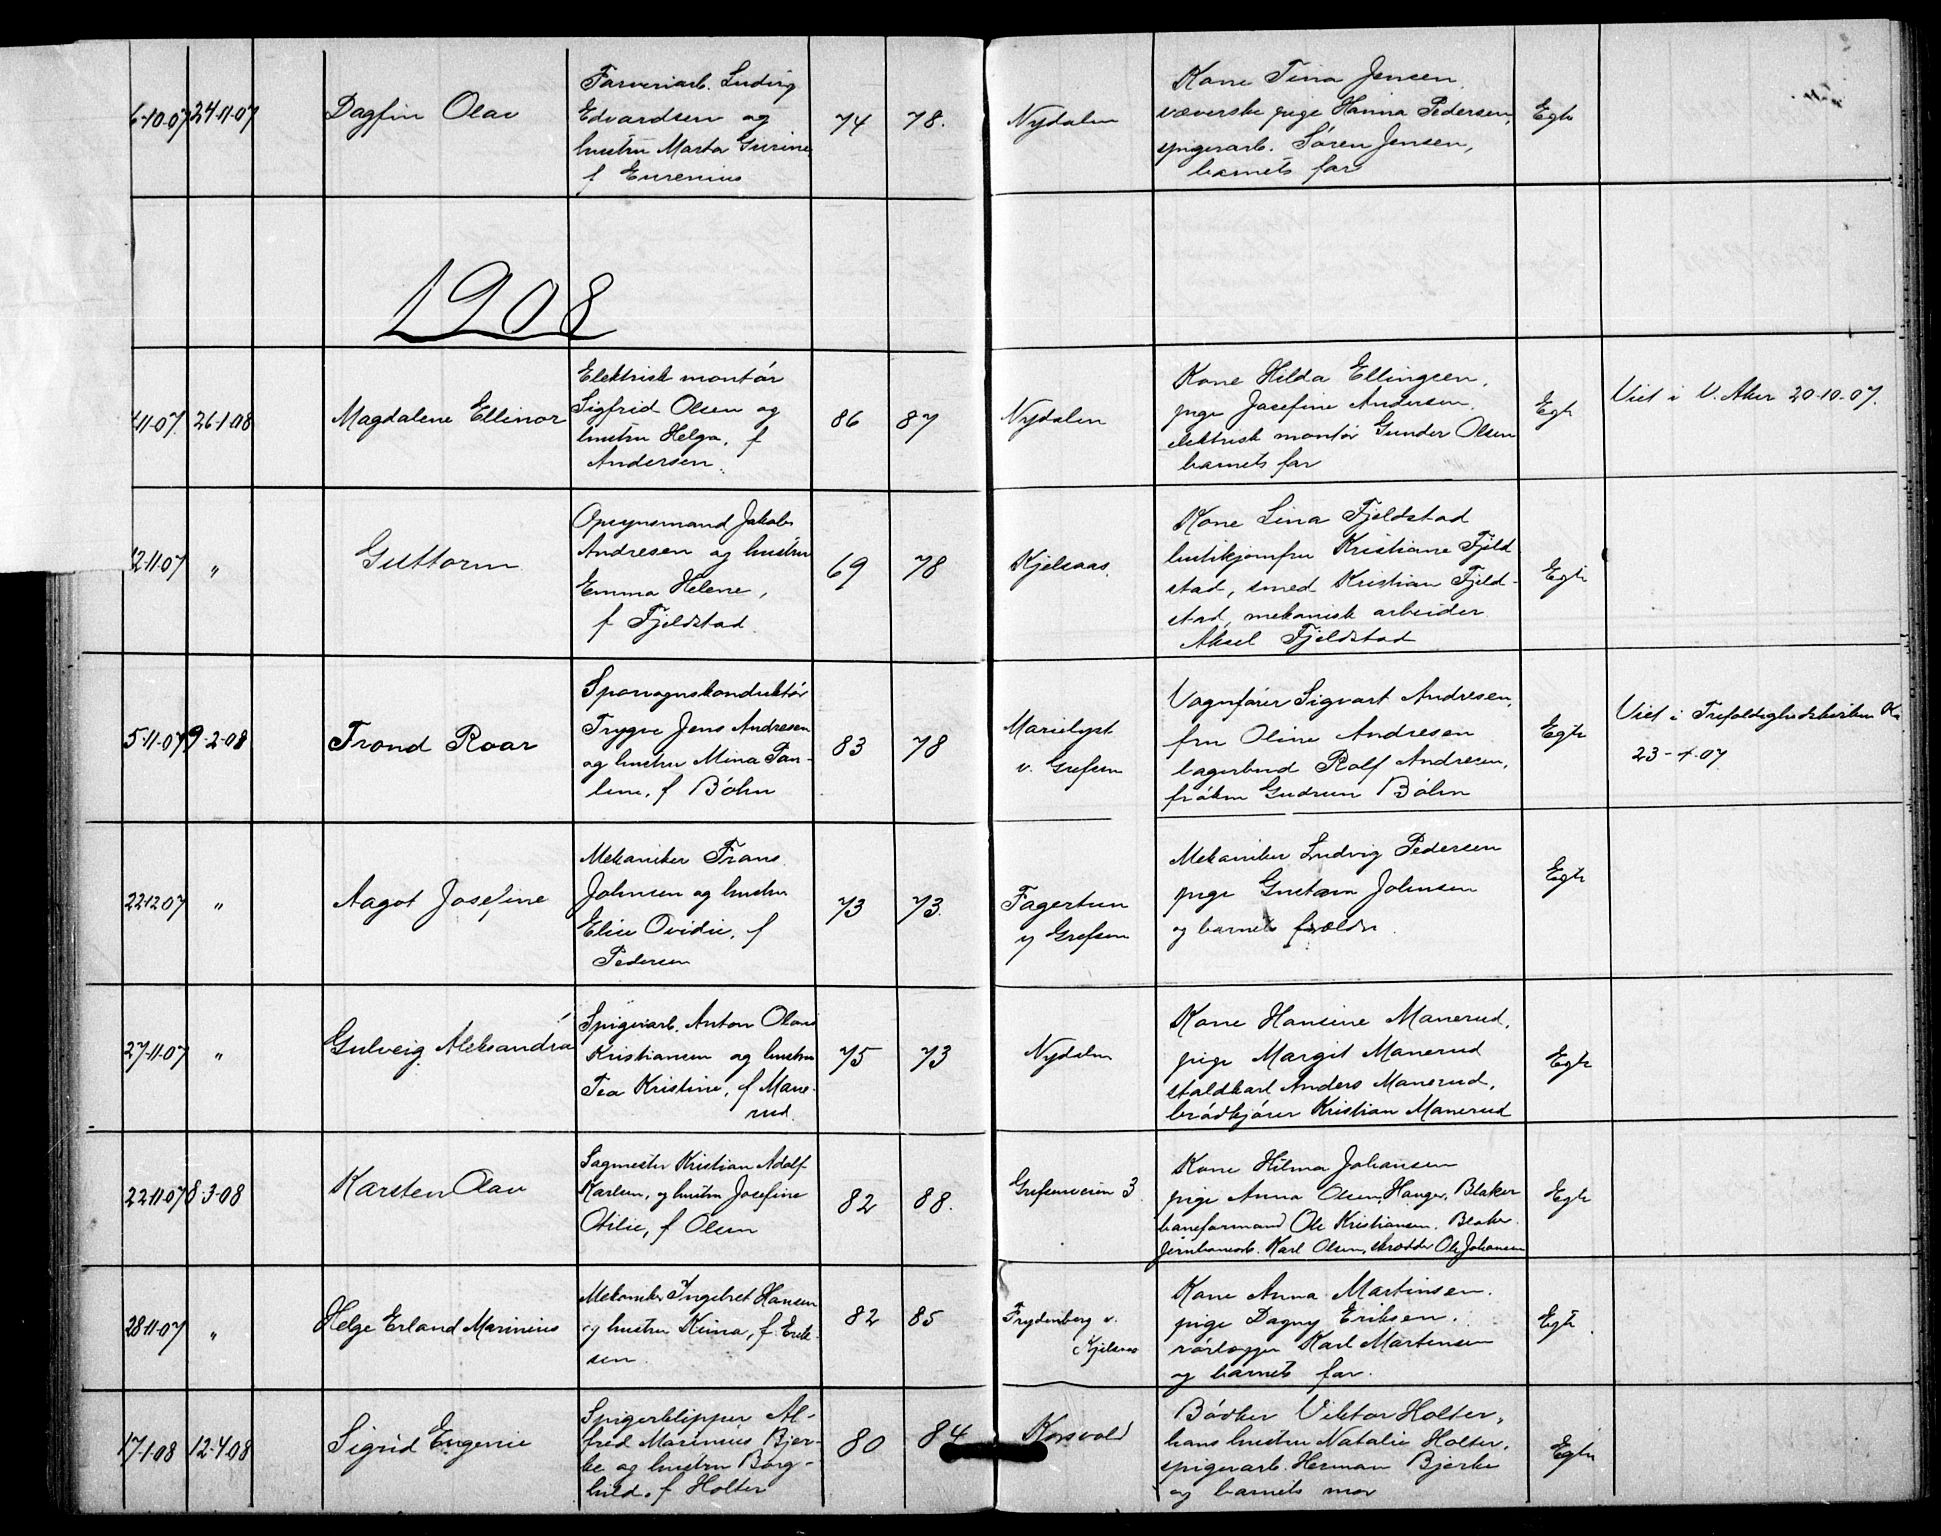 6-10-07 24-11-07 Dagfin Olav
Farveriarb. Ludvig
Edvardsen og
hustru Marta Gurine
f Eurenius
74 78.
Nydalen
Kone Tina Jensen,
væverske pige Hanna Pedersen,
spigerarb. Søren Jensen,
barnets far
Egte
1908
11-07. 26-1-08 Magdalene Ellinor
Elektrisk montør
Sigfrid Olsen og
hustru Helga, f
Andersen.
86 87
Nydalen
Kone Hilda Ellingsen,
pige Josefine Andersen,
elektrisk montør Gunder Olsen
barnets far
Egte
Viet i V. Aker 20-10-07.
2-11-07 " Guttorm
Opsynsmand Jakob
Andresen og hustru
Emma Helene,
f Fjeldstad.
69 78
Kjelsaas.
Kone Lina Fjeldstad
butikjomfru Kristiane Fjeld-
stad, smed Kristian Fjeld-
stad, mekanisk arbeider
Aksel Fjeldstad
Egte
5-11-07 9-2-08 Trond Roar
Sporvognskonduktør
Trygve Jens Andresen
og hustru Mina Pau-
line, f Bøhn
83 78
Marielyst
v. Grefsen
Vognfører Sigvart Andresen,
fru Oline Andresen
lagerbud Rolf Andresen,
frøken Gudrun Bøhn
Egte
Viet i Trefoldighedskirken Kr
23-4-07
22-12-07 " Aagot Josefine
Mekaniker Frans
Johnsen og hustru
Elise Ovidie, f
Pedersen
73 73.
Fagertun
v Grefsen
Mekaniker Ludvig Pedersen
pige Gustava Johnsen
og barnets forældre.
Egte
27-11-07 " Gulveig Aleksandra
Spigerarb. Anton Olaus
Kristiansen og hustru
Tea Kristine, f Mane-
rud.
75 73
Nydalen
Kone Hansine Manerud,
pige Margit Manerud
staldkarl Anders Manerud,
brødkjører Kristian Manerud
Egte
22-11-07 8-3-08 Karsten Olav
Sagmester Kristian Adolf
Karlsen, og hustru Josefine
Otilie, f Olsen
82 88.
Grefsenveien 3.
Kone Hilma Johansen
pige Anna Olsen, Hauger, Blaker
baneformand Ole Kristiansen, Blaker.
Jernbanearb. Karl Olsen, skrædder Ole Johansen
Egte
28-11-07 " Helge Erland Marinius
Mekaniker Ingebret Hansen
og hustru Kima, f. Erik-
sen.
82 85
Frydenberg v.
Kjelsaas
Kone Anna Martinsen.
pige Dagny Eriksen.
rørlægger Karl Martinsen
og barnets far.
Egte.
17-1-08 12-4-08 Sigrid Eugenie
Spigerklipper Al-
fred Marinius Bjer-
ke og hustru Borg-
hild. f Holter
80 84
Korsvold
Bødker Viktor Holter,
hans hustru Natalie Holter,
spigerarb. Herman Bjerke
og barnets mor
Egte